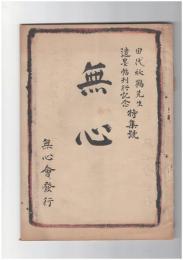 田代秋鶴先生
遺墨帖刊行記念 特集號
無心
無心會發行